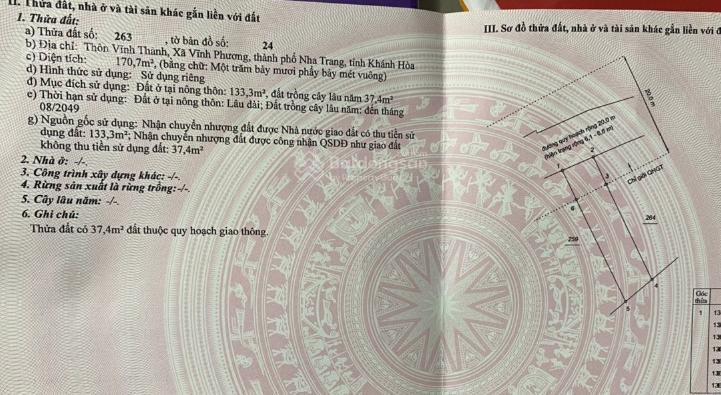 II. Thửa đất, nhà ở và tài sản khác gắn liền với đất
1. Thửa đất:
a) Thửa đất số: 263 , tờ bản đồ số: 24
b) Địa chỉ: Thôn Vĩnh Thành, Xã Vĩnh Phương, thành phố Nha Trang, tỉnh Khánh Hòa
c) Diện tích: 170,7m², (bằng chữ: Một trăm bảy mươi phẩy bảy mét vuông)
d) Hình thức sử dụng: Sử dụng riêng
đ) Mục đích sử dụng: Đất ở tại nông thôn: 133,3m², đất trồng cây lâu năm 37,4m²
e) Thời hạn sử dụng: Đất ở tại nông thôn: Lâu dài; Đất trồng cây lâu năm: đến tháng
08/2049
g) Nguồn gốc sử dụng: Nhận chuyển nhượng đất được Nhà nước giao đất có thu tiền sử
dụng đất: 133,3m²; Nhận chuyển nhượng đất được công nhận QSDĐ như giao đất
không thu tiền sử dụng đất: 37,4m²
2. Nhà ở: -/-.
3. Công trình xây dựng khác: -/-.
4. Rừng sản xuất là rừng trồng:-/-.
5. Cây lâu năm: -/-.
6. Ghi chú:
Thửa đất có 37,4m² đất thuộc quy hoạch giao thông.
Batdongsan
III. Sơ đồ thửa đất, nhà ở và tài sản khác gắn liền với đ
20,0 m
đường quy hoạch rộng 20,0 m
(hiện trạng rộng 6,1 - 6,6 m)
1
2
3
Chỉ giới QHGT
6
264
259
4
5
Góc
thửa
1